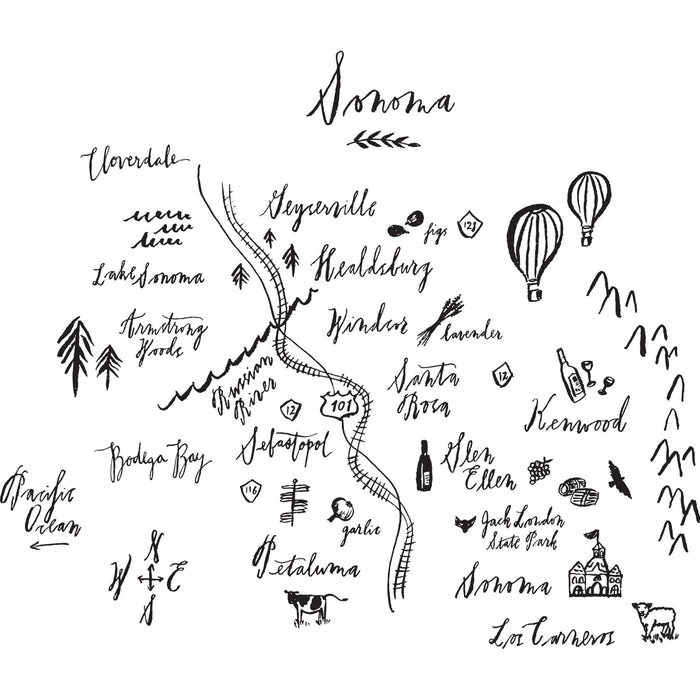 Sonoma
Cloverdale
Geyserville
figs
128
Lake Sonoma
Healdsburg
Armstrong
Woods
Windsor
lavender
Russian
River
Santa
Rosa
12
12
101
Kenwood
Bodega Bay
Sebastopol
Glen
Ellen
116
Pacific
Ocean
garlic
Jack London
State Park
N
W E
S
Petaluma
Sonoma
Los Carneros